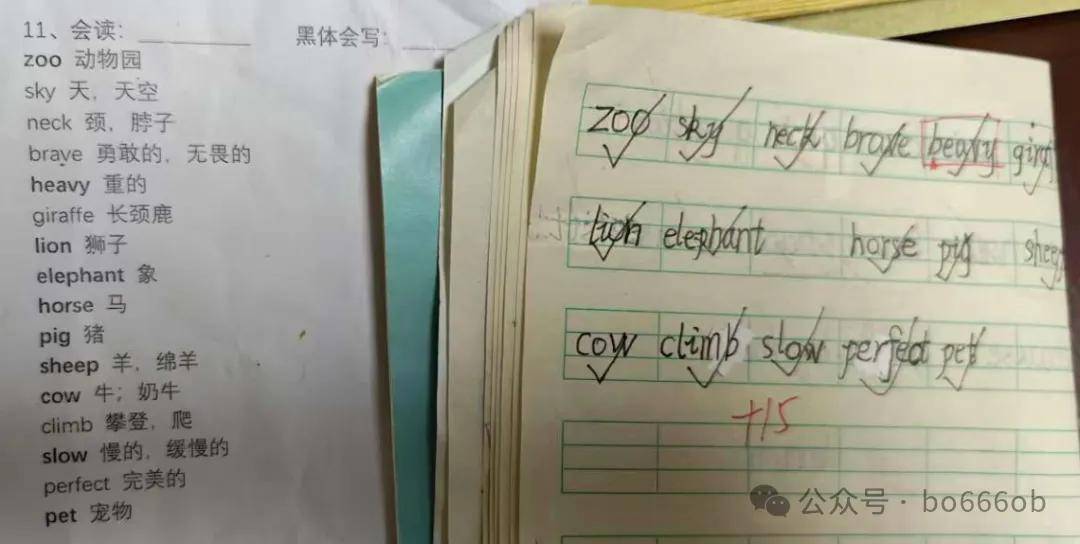 11、会读：__________ 黑体会写：____
zoo 动物园
sky 天，天空
neck 颈，脖子
brave 勇敢的，无畏的
heavy 重的
giraffe 长颈鹿
lion 狮子
elephant 象
horse 马
pig 猪
sheep 羊，绵羊
cow 牛；奶牛
climb 攀登，爬
slow 慢的，缓慢的
perfect 完美的
pet 宠物
zoo sky neck brave beavy
lion elephant horse pig sheep
cow climb slow perfect pet
+15
公众号 · bo666ob